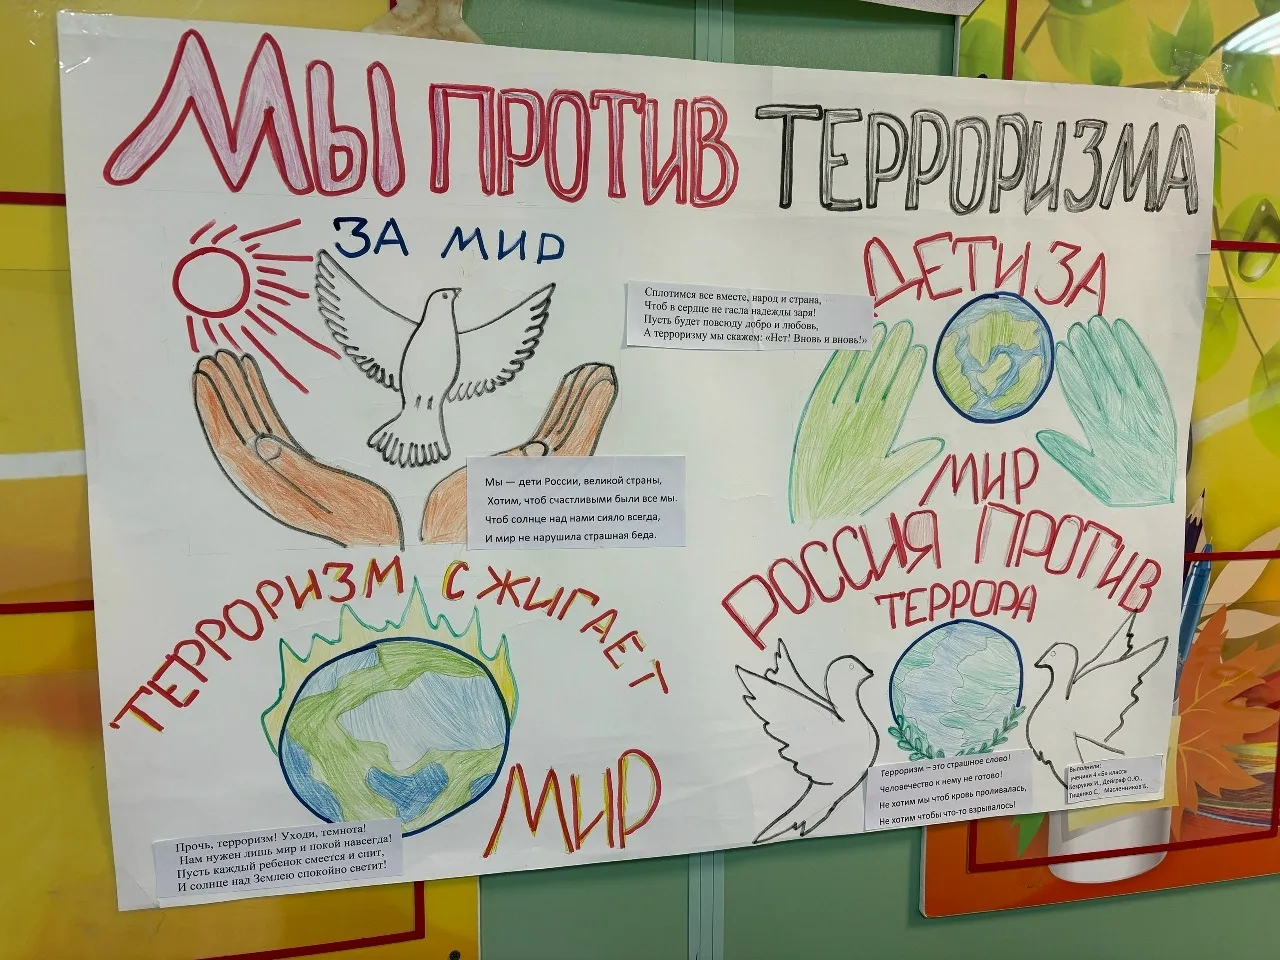 МЫ ПРОТИВ ТЕРРОРИЗМА
ЗА МИР
Сплотимся все вместе, народ и страна,
Чтоб в сердце не гасла надежды заря!
Пусть будет повсюду добро и любовь,
А терроризму мы скажем: «Нет! Вновь и вновь!»
ДЕТИ ЗА
МИР
Мы — дети России, великой страны,
Хотим, чтоб счастливыми были все мы.
Чтоб солнце над нами сияло всегда,
И мир не нарушила страшная беда.
ТЕРРОРИЗМ СЖИГАЕТ
МИР
Прочь, терроризм! Уходи, темнота!
Нам нужен лишь мир и покой навсегда!
Пусть каждый ребенок смеется и спит,
И солнце над Землею спокойно светит!
РОССИЯ ПРОТИВ
ТЕРРОРА
Терроризм – это страшное слово!
Человечество к нему не готово!
Не хотим мы чтоб кровь проливалась,
Не хотим чтобы что-то взрывалось!
Выполнили:
ученики 4 «Б» класса
Безруких И., Дейграф О.Ю.,
Тищенко С., Масленников Б.